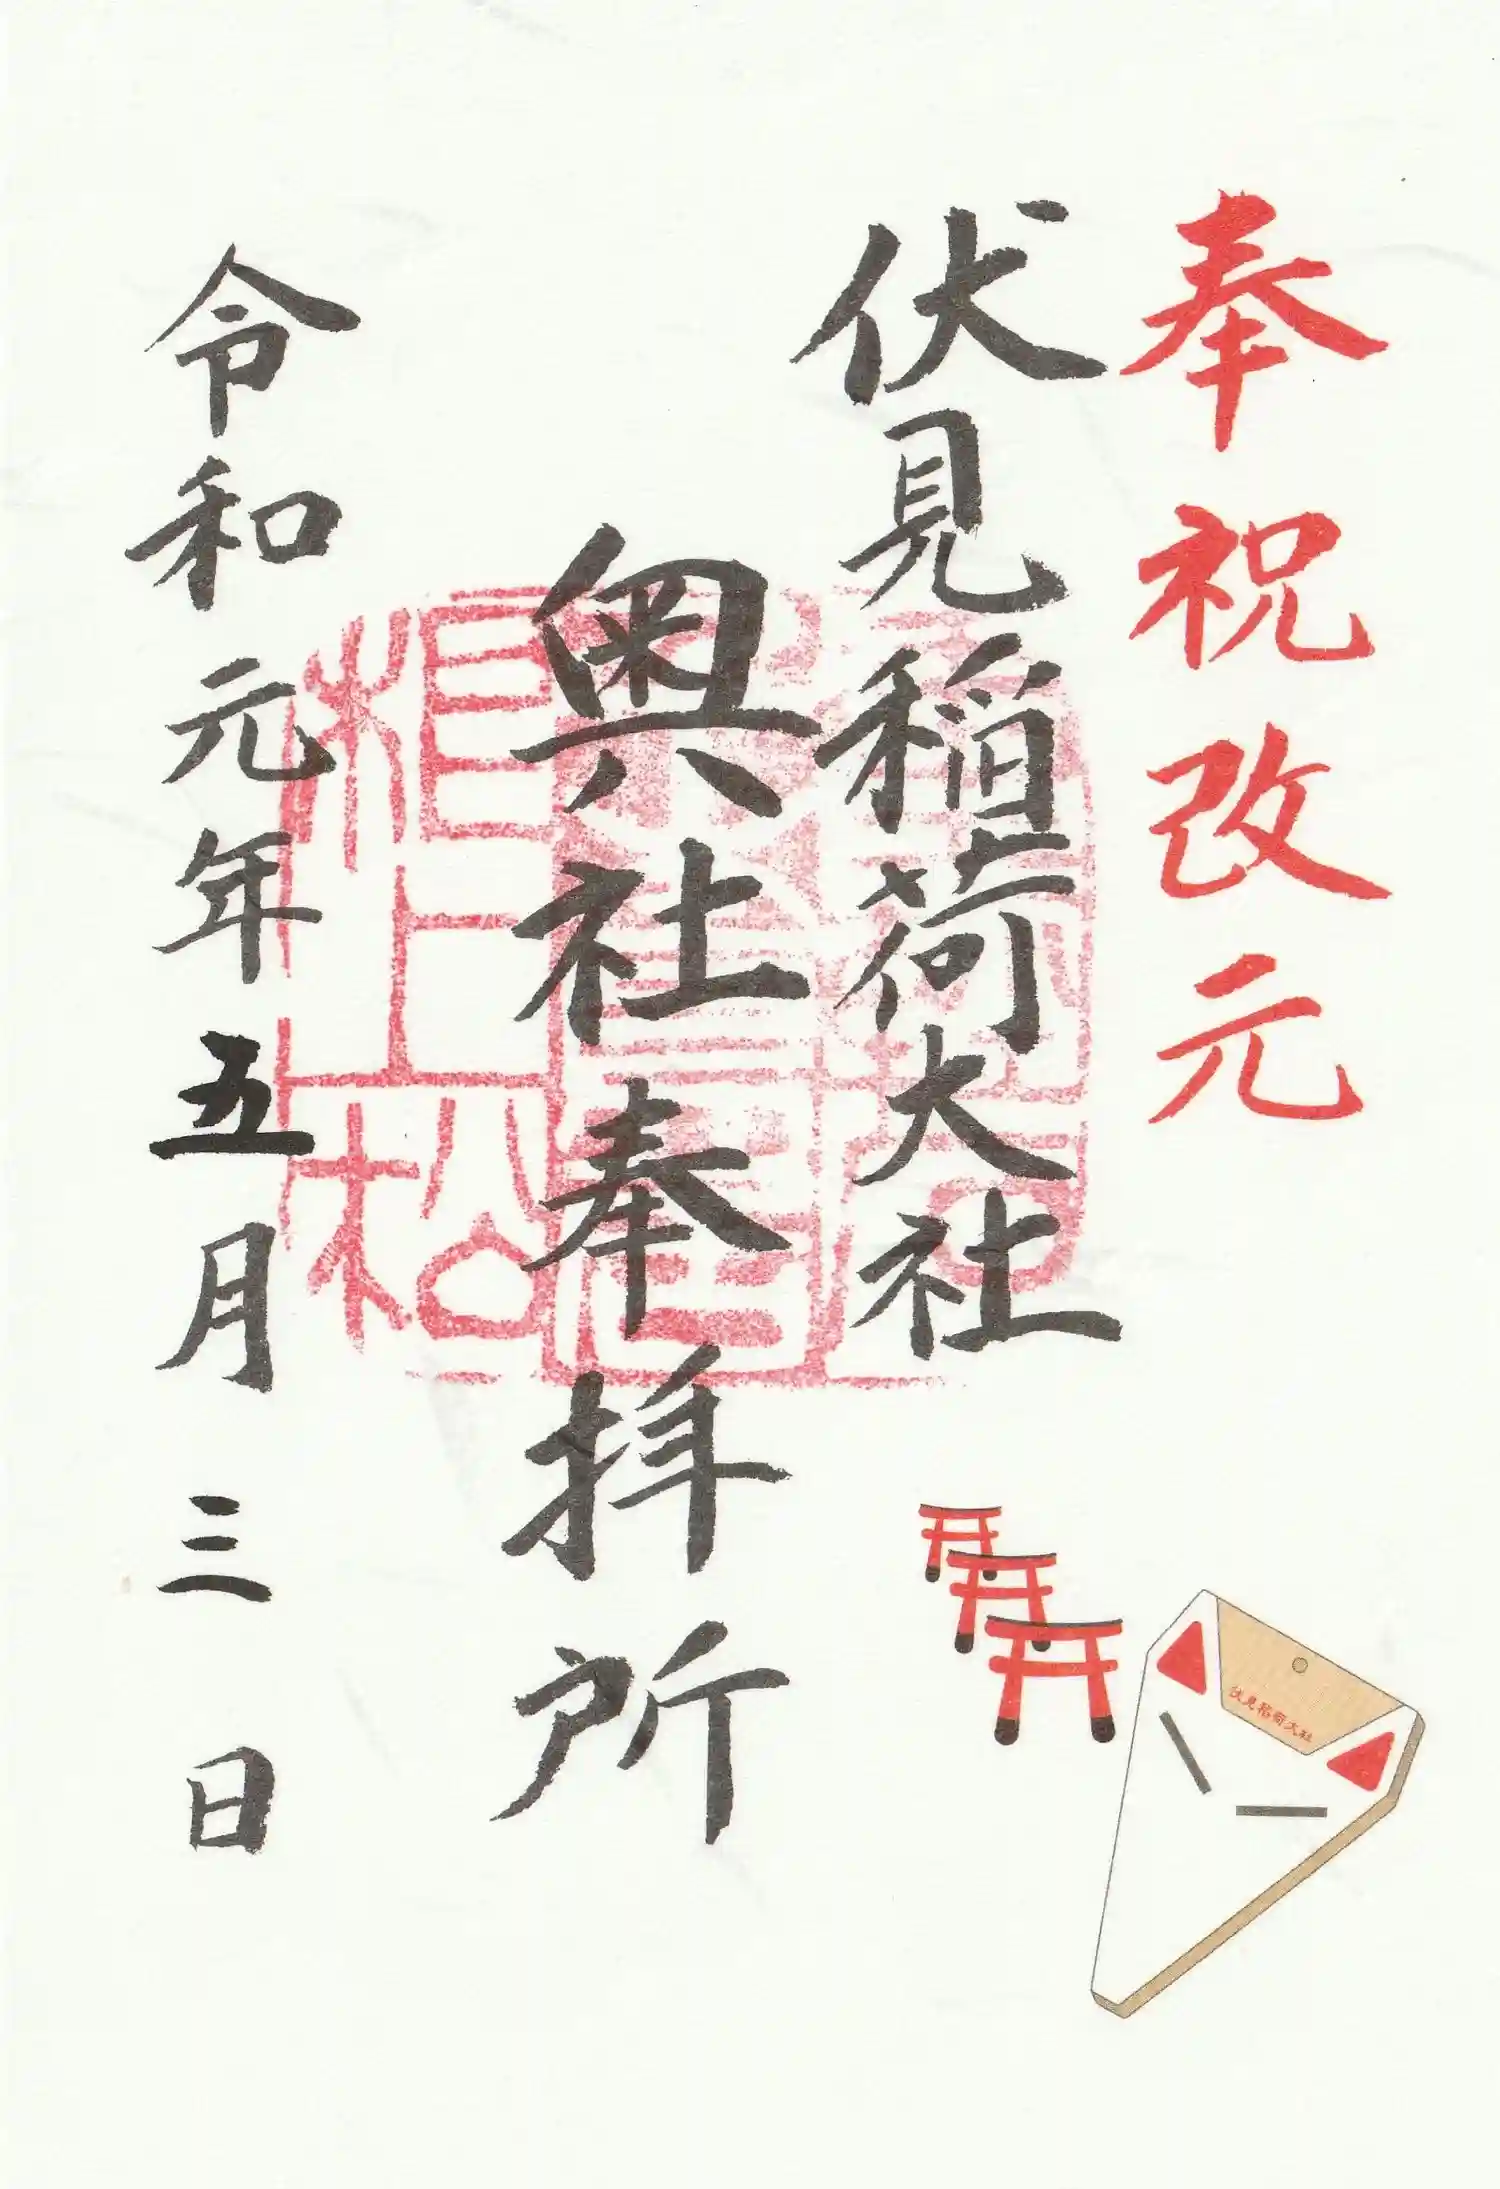 奉祝改元
伏見稲荷大社
奥社奉拝所
令和元年五月三日
伏見稲荷大社